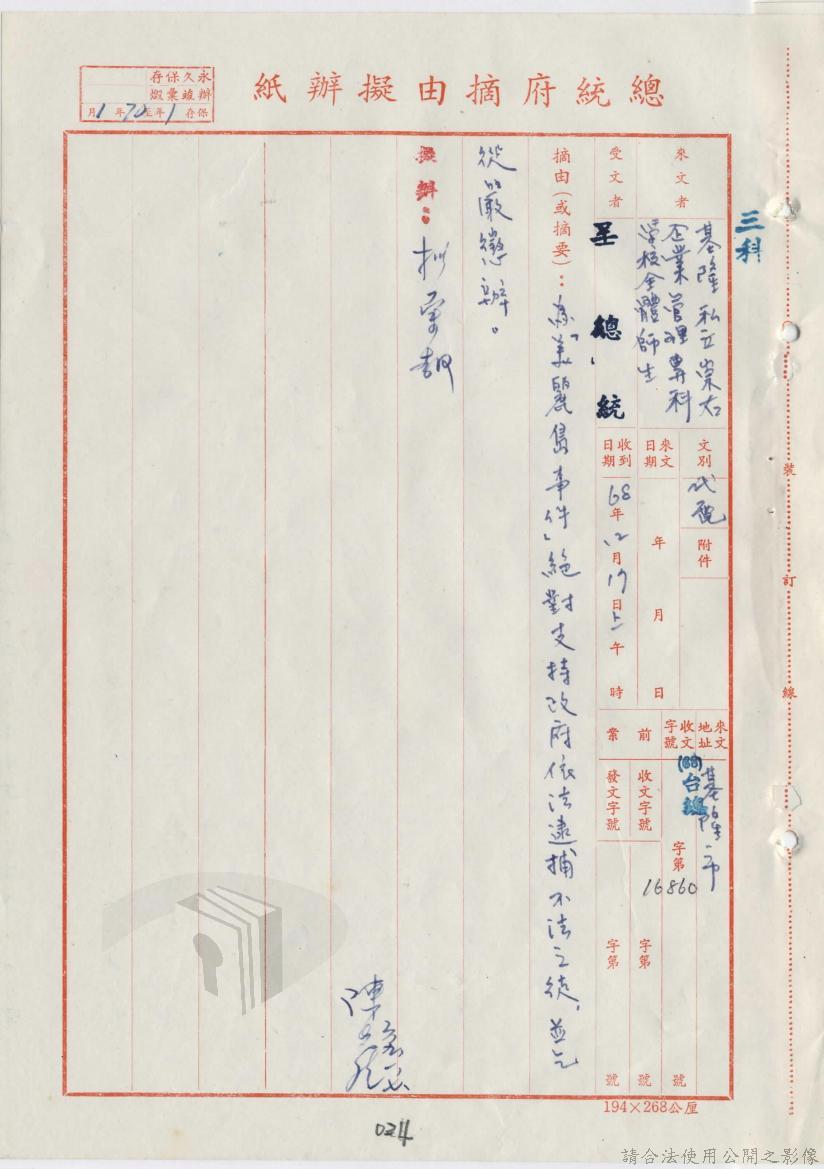 總統府摘由擬辦紙
永久保存
辦竣彙燬
保存1年至70年1月
三科
來文者
基隆私立崇右
企業管理專科
學校全體師生
文別
代電
附件
來文地址
基隆市
受文者
呈總統
來文日期
年月日
收到日期
68年12月17日上午時
收文字號
(68)台總
字第
16860
號
前案
收文字號
字第
號
發文字號
字第
號
摘由(或摘要):為「美麗島事件」絕對支持政府依法逮捕不法之徒,並乞
從嚴懲辦。
擬辦:
裝訂線
194×268公厘
024
請合法使用公開之影像